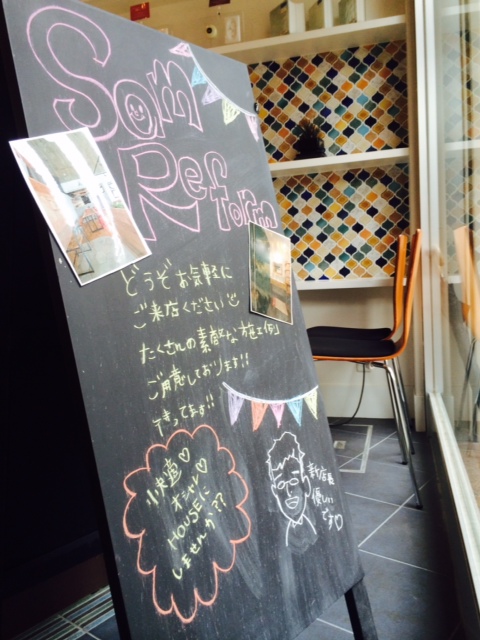 Sam
Reform
どうぞお気軽に
ご来店ください
たくさんの素敵な施工例
ご用意しております!!
待ってます!!
快適♡
オシャレ♡
HOUSEに
しませんか??
新店長
優しい
です♡